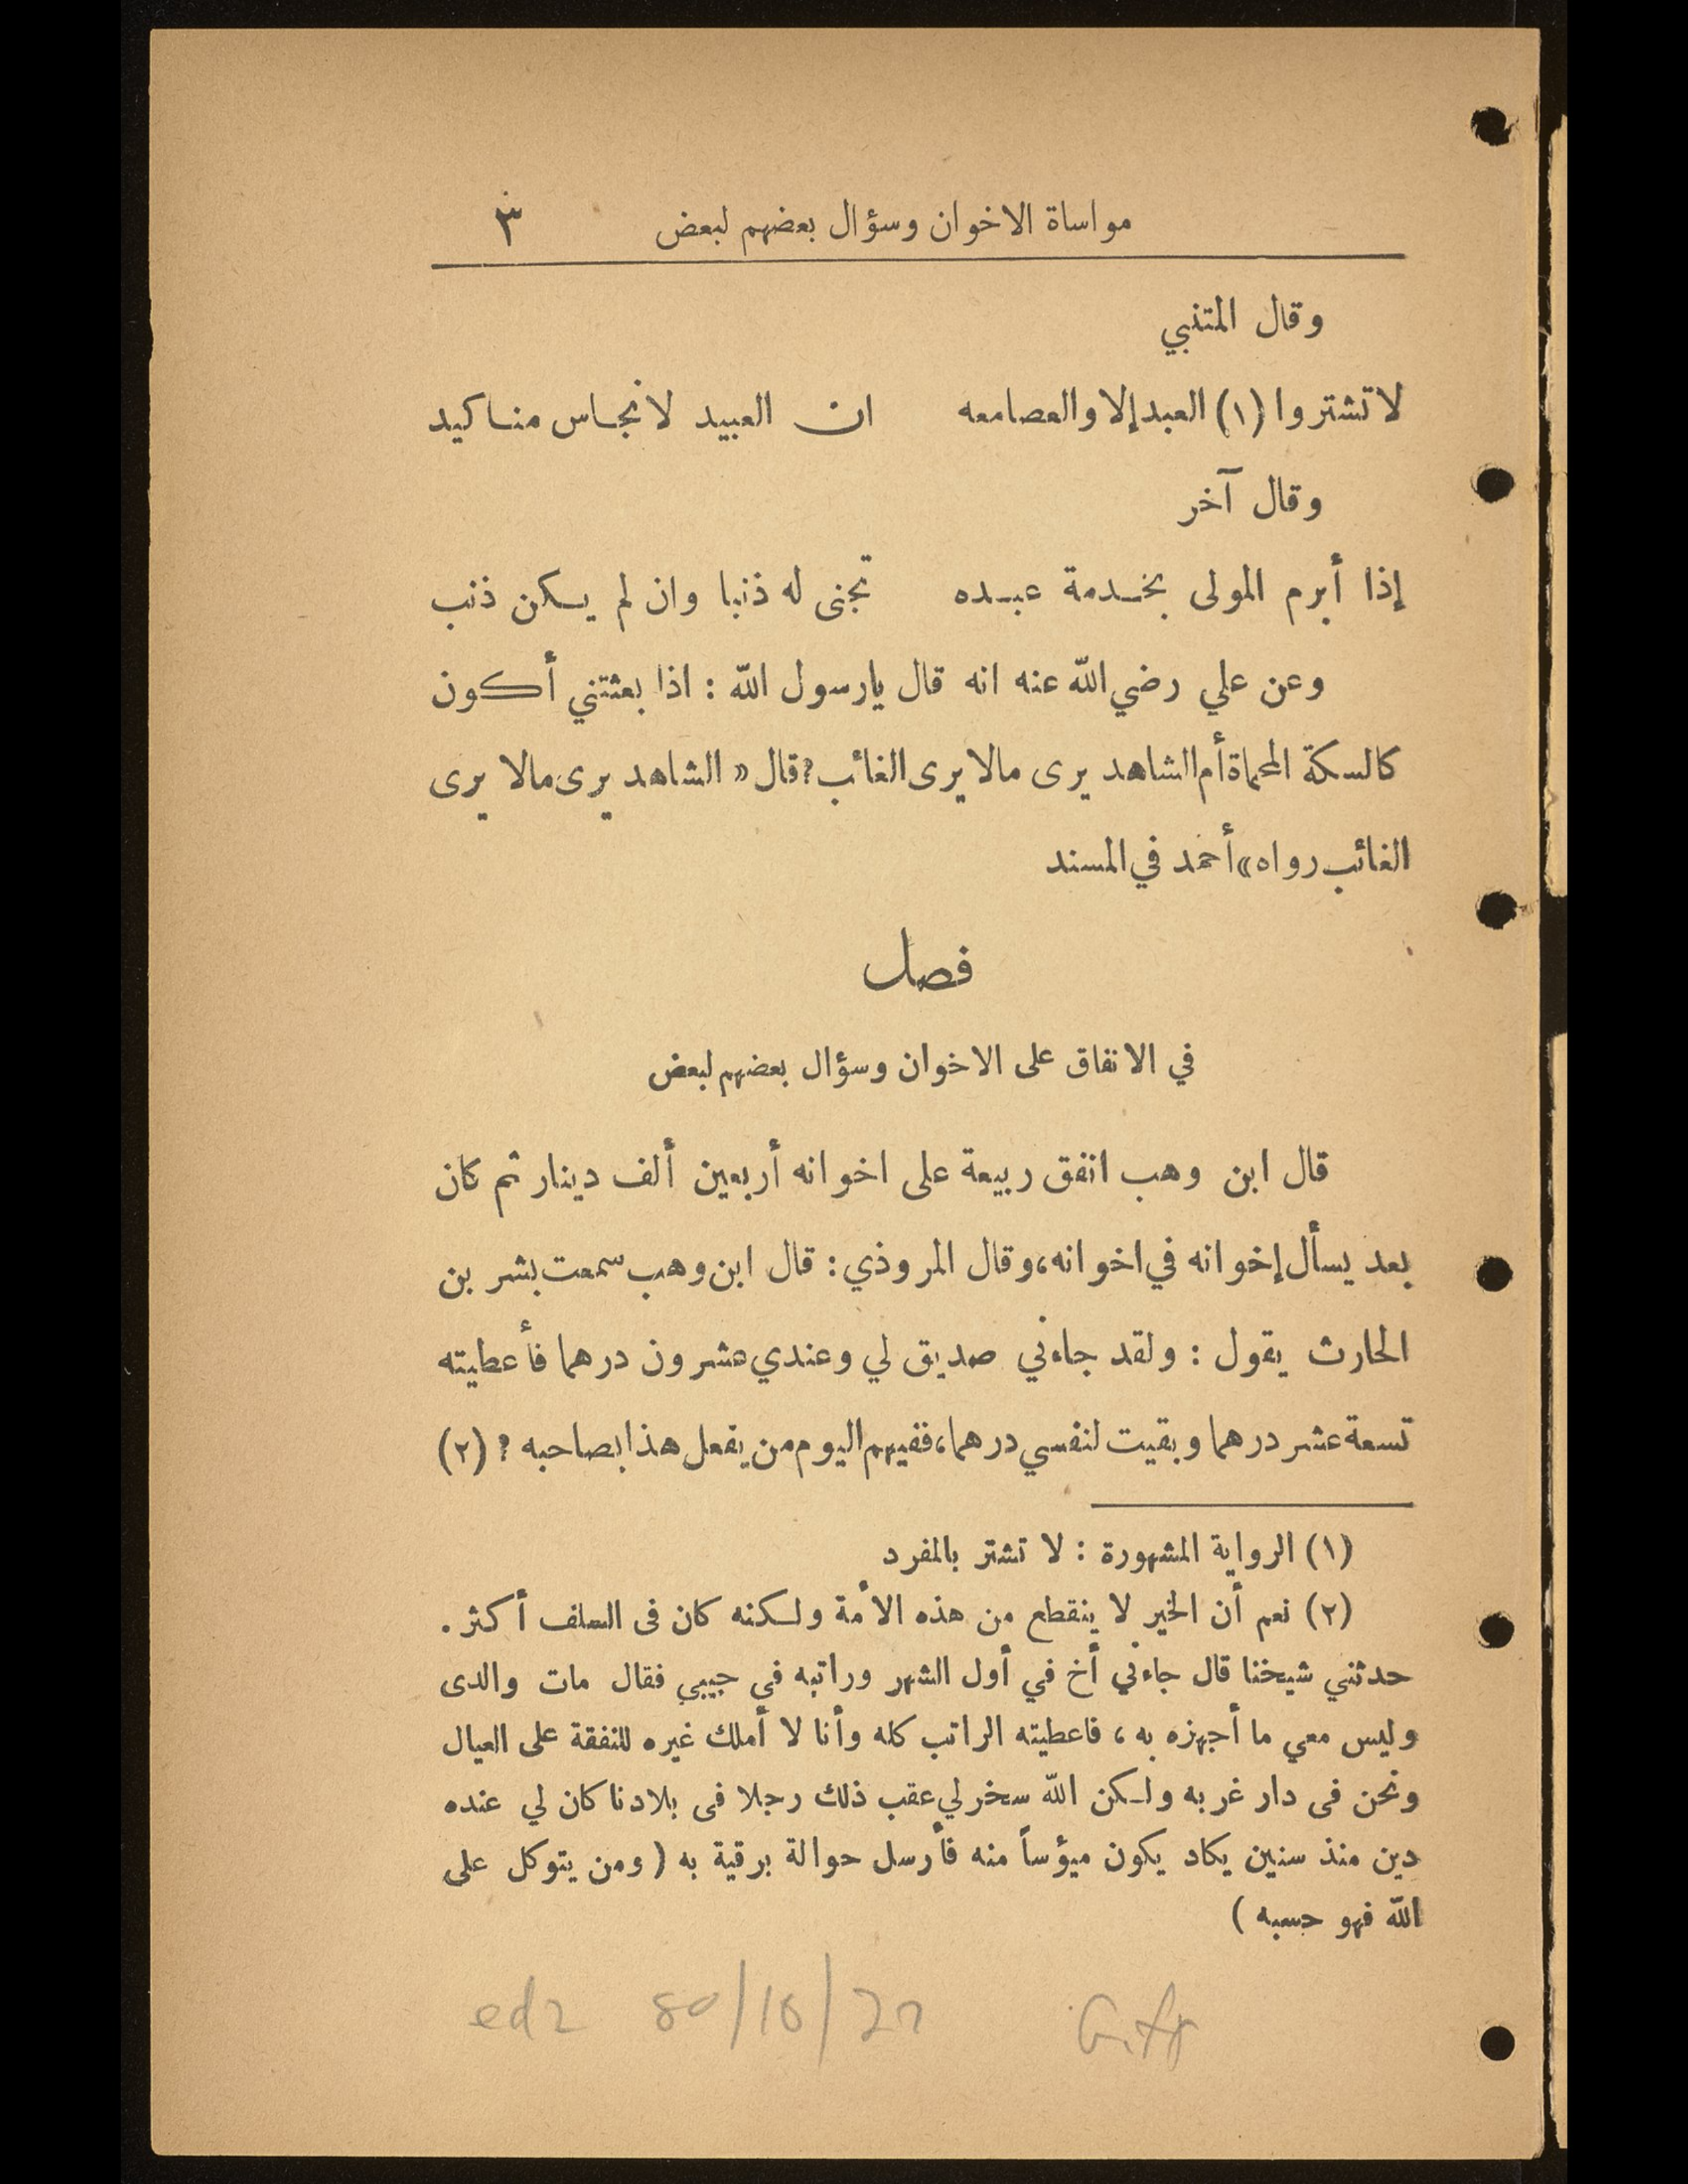 مواساة الاخوان وسؤال بعضهم لبعض ٣
وقال المتنبي
لا تشتروا (١) العبد إلا والعصا معه ان العبيد لأنجاس مناكيد
وقال آخر
إذا أبرم المولى بخدمة عبده تجنى له ذنبا وان لم يكن ذنب
وعن علي رضي الله عنه انه قال يارسول الله : اذا بعثتني أكون
كالسكة المحماة أم الشاهد يرى مالا يرى الغائب؟ قال « الشاهد يرى مالا يرى
الغائب رواه» أحمد في المسند
فصل
في الانفاق على الاخوان وسؤال بعضهم لبعض
قال ابن وهب انفق ربيعة على اخوانه أربعين ألف دينار ثم كان
بعد يسأل إخوانه في اخوانه، وقال المروذي : قال ابن وهب سمعت بشر بن
الحارث يقول : ولقد جاءني صديق لي وعندي عشرون درهما فأعطيته
تسعة عشر درهما وبقيت لنفسي درهما، ففيهم اليوم من يفعل هذا بصاحبه ؟ (٢)
(١) الرواية المشهورة : لا تشتر بالمفرد
(٢) نعم أن الخير لا ينقطع من هذه الأمة ولكنه كان فى السلف أكثر .
حدثني شيخنا قال جاءني أخ في أول الشهر وراتبه في جيبي فقال مات والدى
وليس معي ما أجهزه به ، فاعطيته الراتب كله وأنا لا أملك غيره للنفقة على العيال
ونحن فى دار غربه ولكن الله سخر لي عقب ذلك رجلا فى بلادنا كان لي عنده
دين منذ سنين يكاد يكون ميؤساً منه فأرسل حوالة برقية به ( ومن يتوكل على
الله فهو حسبه )
Gift